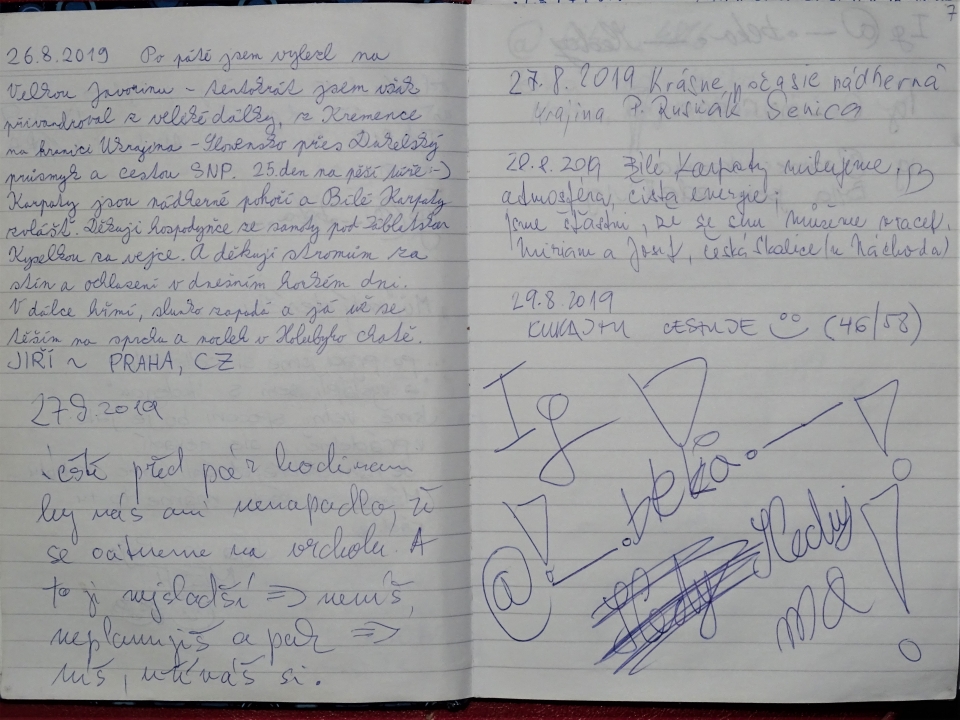 26.8.2019 Po páté jsem vylezl na
Velkou Javorinu - tentokrát jsem však
přivandroval z veliké dálky, z Kremence
na hranici Ukrajina - Slovensko přes Dukelský
průsmyk a cestou SNP. 25. den na pěší túře :-)
Karpaty jsou nádherné pohoří a Bílé Karpaty
zvlášť. Děkuji hospodyňce ze samoty pod
Kyselkou za vejce. A děkuji stromům za
stín a ochlazení v dnešním horkém dni.
V dálce hřmí, slunko zapadá a já už se
těším na sprchu a nocleh v Holubyho chatě.
JIŘÍ ~ PRAHA, CZ
27.8.2019
ještě před pár hodinami
by nás ani nenapadlo, ž
se ocitneme na vrcholu. A
to je nejsladší => nemíš,
neplanuješ a pak =>
užíváš si.
7
27.8.2019 Krásne počasie nádherná
krajina P. Rusňák Senica
28.8.2019 Bílé Karpaty milujeme,
admosféra, čistá energie;
jsme šťastni, že se sem můžeme vracet.
Miriam a Josef, česká Skalice (u Náchoda)
29.8.2019
KUKAJTU CESTUJE (46/58)
Ig
@ beka
Hedy Heduj